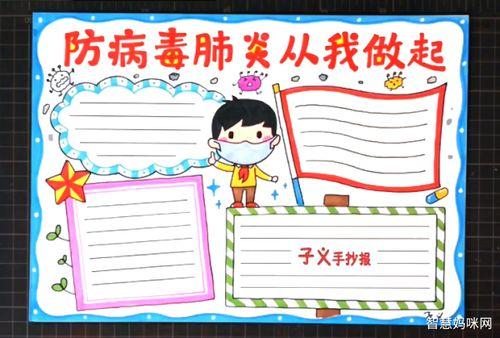 防病毒肺炎从我做起
子义手抄报
子义
智慧妈咪网